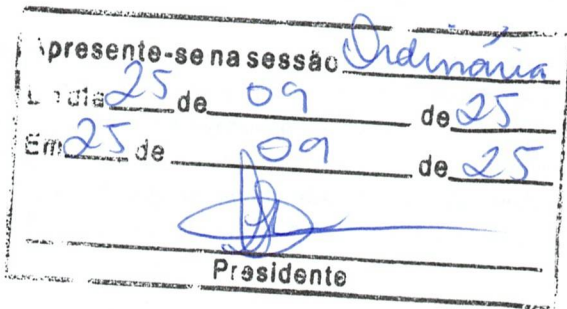 Apresente-se na sessão Ordinária
dia 25 de 09 de 25
Em 25 de 09 de 25
Presidente